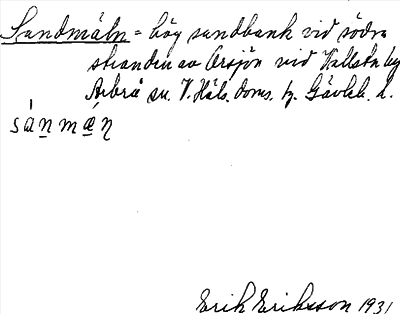 Sandmäln = hög sandbank vid södra
stranden av Orsjön vid Vallsta by
Arbrå sn. V. Häls. doms. tg. Gävleb. l.
sánmæn
Erik Eriksson 1931